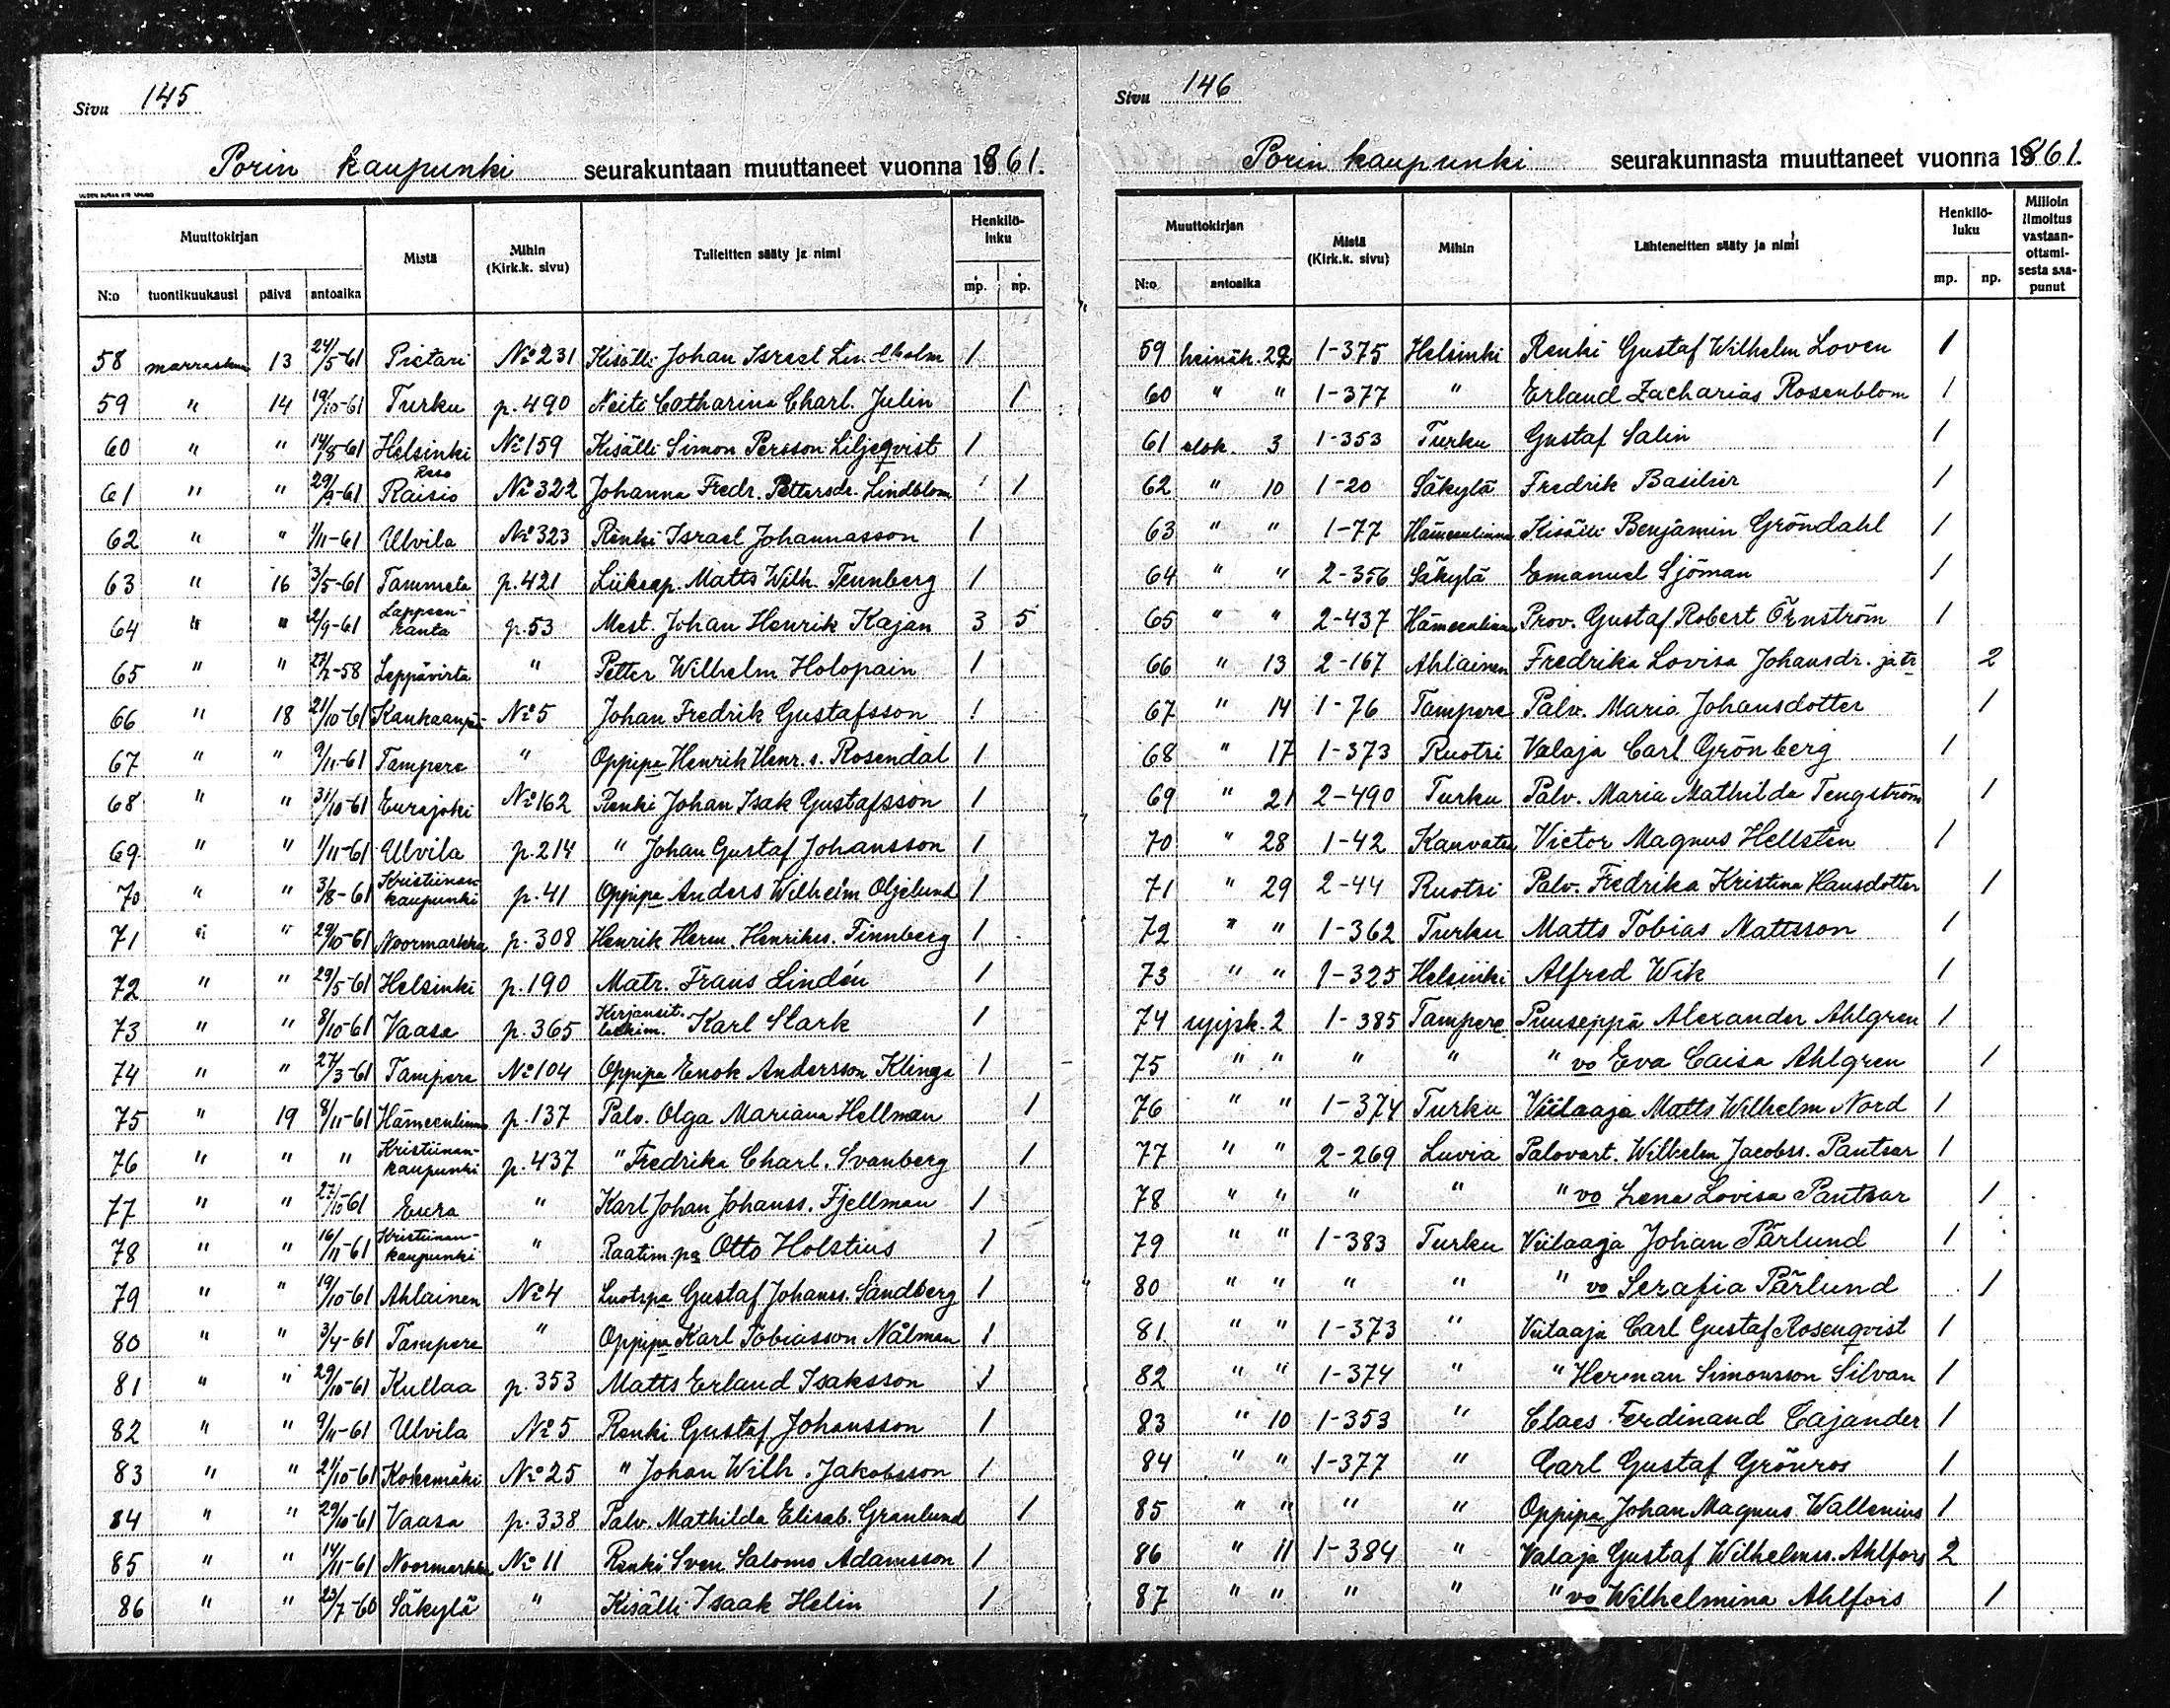 Sivu 145
Porin kaupunki seurakuntaan muuttaneet vuonna 1861.
Muuttokirjan Mistä Mihin (Kirk.k. sivu) Tulleitten sääty ja nimi Henkilö-luku
N:o tuontikuukausi päivä antoaika mp. np.
58 marraskuu 13 24/5-61 Pietari No 231 Kisälli Johan Israel Lindholm 1
59 " 14 19/10-61 Turku p. 490 Neiti Catharina Charl. Julin 1
60 " " 14/8-61 Helsinki No 159 Kisälli Simon Persson Liljeqvist 1
61 " " 29/9-61 Reso Raisio No 322 Johanna Fredr. Pettersdr. Lindblom 1
62 " " 1/11-61 Ulvila No 323 Renki Israel Johannasson 1
63 " 16 3/5-61 Tammela p. 421 Liikeap. Matts Wilh. Tennberg 1
64 " " 2/9-61 Lappeen-ranta p. 53 Mest. Johan Henrik Kajan 3 5
65 " " 27/7-58 Leppävirta " Petter Wilhelm Holopain 1
66 " 18 21/10-61 Kankaanpä- No 5 Johan Fredrik Gustafsson 1
67 " " 9/11-61 Tampere " Oppipa Henrik Henr. s. Rosendal 1
68 " " 31/10-61 Eurajoki No 162 Renki Johan Isak Gustafsson 1
69 " " 1/11-61 Ulvila p. 214 " Johan Gustaf Johansson 1
70 " " 3/8-61 Kristiinan-kaupunki p. 41 Oppipa Anders Wilhelm Oljelund 1
71 " " 29/10-61 Noormarkku p. 308 Henrik Herm. Henrikss. Finnberg 1
72 " " 29/5-61 Helsinki p. 190 Matr. Frans Lindén 1
73 " " 8/10-61 Vaasa p. 365 Kirjansit. Karl Stark 1
74 " " 27/3-61 Tampere No 104 Oppipa Enok Andersson Klinga 1
75 " 19 8/11-61 Hämeenlinna p. 137 Palv. Olga Mariana Hellman 1
76 " " " Kristiinan-kaupunki p. 437 " Fredrika Charl. Svanberg 1
77 " " 27/10-61 Eura " Karl Johan Johanss. Fjellman 1
78 " " 16/11-61 Kristiinan-kaupunki " Raatim. pa Otto Holstius 1
79 " " 19/10-61 Ahlainen No 4 Luotspa Gustaf Johanss. Sandberg 1
80 " " 3/4-61 Tampere " Oppipa Karl Tobiasson Nålman 1
81 " " 29/10-61 Kullaa p. 353 Matts Erland Isaksson 1
82 " " 9/11-61 Ulvila No 5 Renki Gustaf Johansson 1
83 " " 21/10-61 Kokemäki No 25 " Johan Wilh. Jakobsson 1
84 " " 29/10-61 Vaasa p. 338 Palv. Mathilda Elisab. Granlund 1
85 " " 14/11-61 Noormarkku No 11 Renki Sven Salomo Adamsson 1
86 " " 23/7-60 Säkylä " Kisälli Isaak Helin 1
Sivu 146
Porin kaupunki seurakunnasta muuttaneet vuonna 1861.
Muuttokirjan Mistä (Kirk.k. sivu) Mihin Lähteneitten sääty ja nimi Henkilö-luku Milloin ilmoitus vastaan-ottami-sesta saa-punut
N:o antoaika mp. np.
59 heinäk. 29 1-375 Helsinki Renki Gustaf Wilhelm Loven 1
60 " " 1-377 " Erland Zacharias Rosenblom 1
61 elok. 3 1-353 Turku Gustaf Salin 1
62 " 10 1-20 Säkylä Fredrik Basilier 1
63 " " 1-77 Hämeenlinna Kisälli Benjamin Gröndahl 1
64 " " 2-356 Säkylä Emanuel Sjöman 1
65 " " 2-437 Hämeenlinna Prov. Gustaf Robert Örnström 1
66 " 13 2-167 Ahlainen Fredrika Lovisa Johansdr. ja tr 2
67 " 14 1-76 Tampere Palv. Maria Johansdotter 1
68 " 17 1-373 Ruotsi Valaja Carl Grönberg 1
69 " 21 2-490 Turku Palv. Maria Mathilda Tengström 1
70 " 28 1-42 Kauvatsa Victor Magnus Hellstén 1
71 " 29 2-44 Ruotsi Palv. Fredrika Kristina Hansdotter 1
72 " " 1-362 Turku Matts Tobias Mattsson 1
73 " " 1-325 Helsinki Alfred Wik 1
74 syysk. 2 1-385 Tampere Puuseppä Alexander Ahlgren 1
75 " " " " " vo Eva Caisa Ahlgren 1
76 " " 1-374 Turku Viilaaja Matts Wilhelm Nord 1
77 " " 2-269 Luvia Palovart. Wilhelm Jacobss. Pantsar 1
78 " " " " " vo Lena Lovisa Pantsar 1
79 " " 1-383 Turku Viilaaja Johan Pärlund 1
80 " " " " " vo Serafia Pärlund 1
81 " " 1-373 " Viilaaja Carl Gustaf Rosenqvist 1
82 " " 1-374 " " Herman Simonsson Silvan 1
83 " 10 1-353 " Claes Ferdinand Cajander 1
84 " " 1-377 " Carl Gustaf Grönros 1
85 " " " " Oppipa Johan Magnus Wallenius 1
86 " 11 1-384 " Valaja Gustaf Wilhelmss. Ahlfors 2
87 " " " " " vo Wilhelmina Ahlfors 1